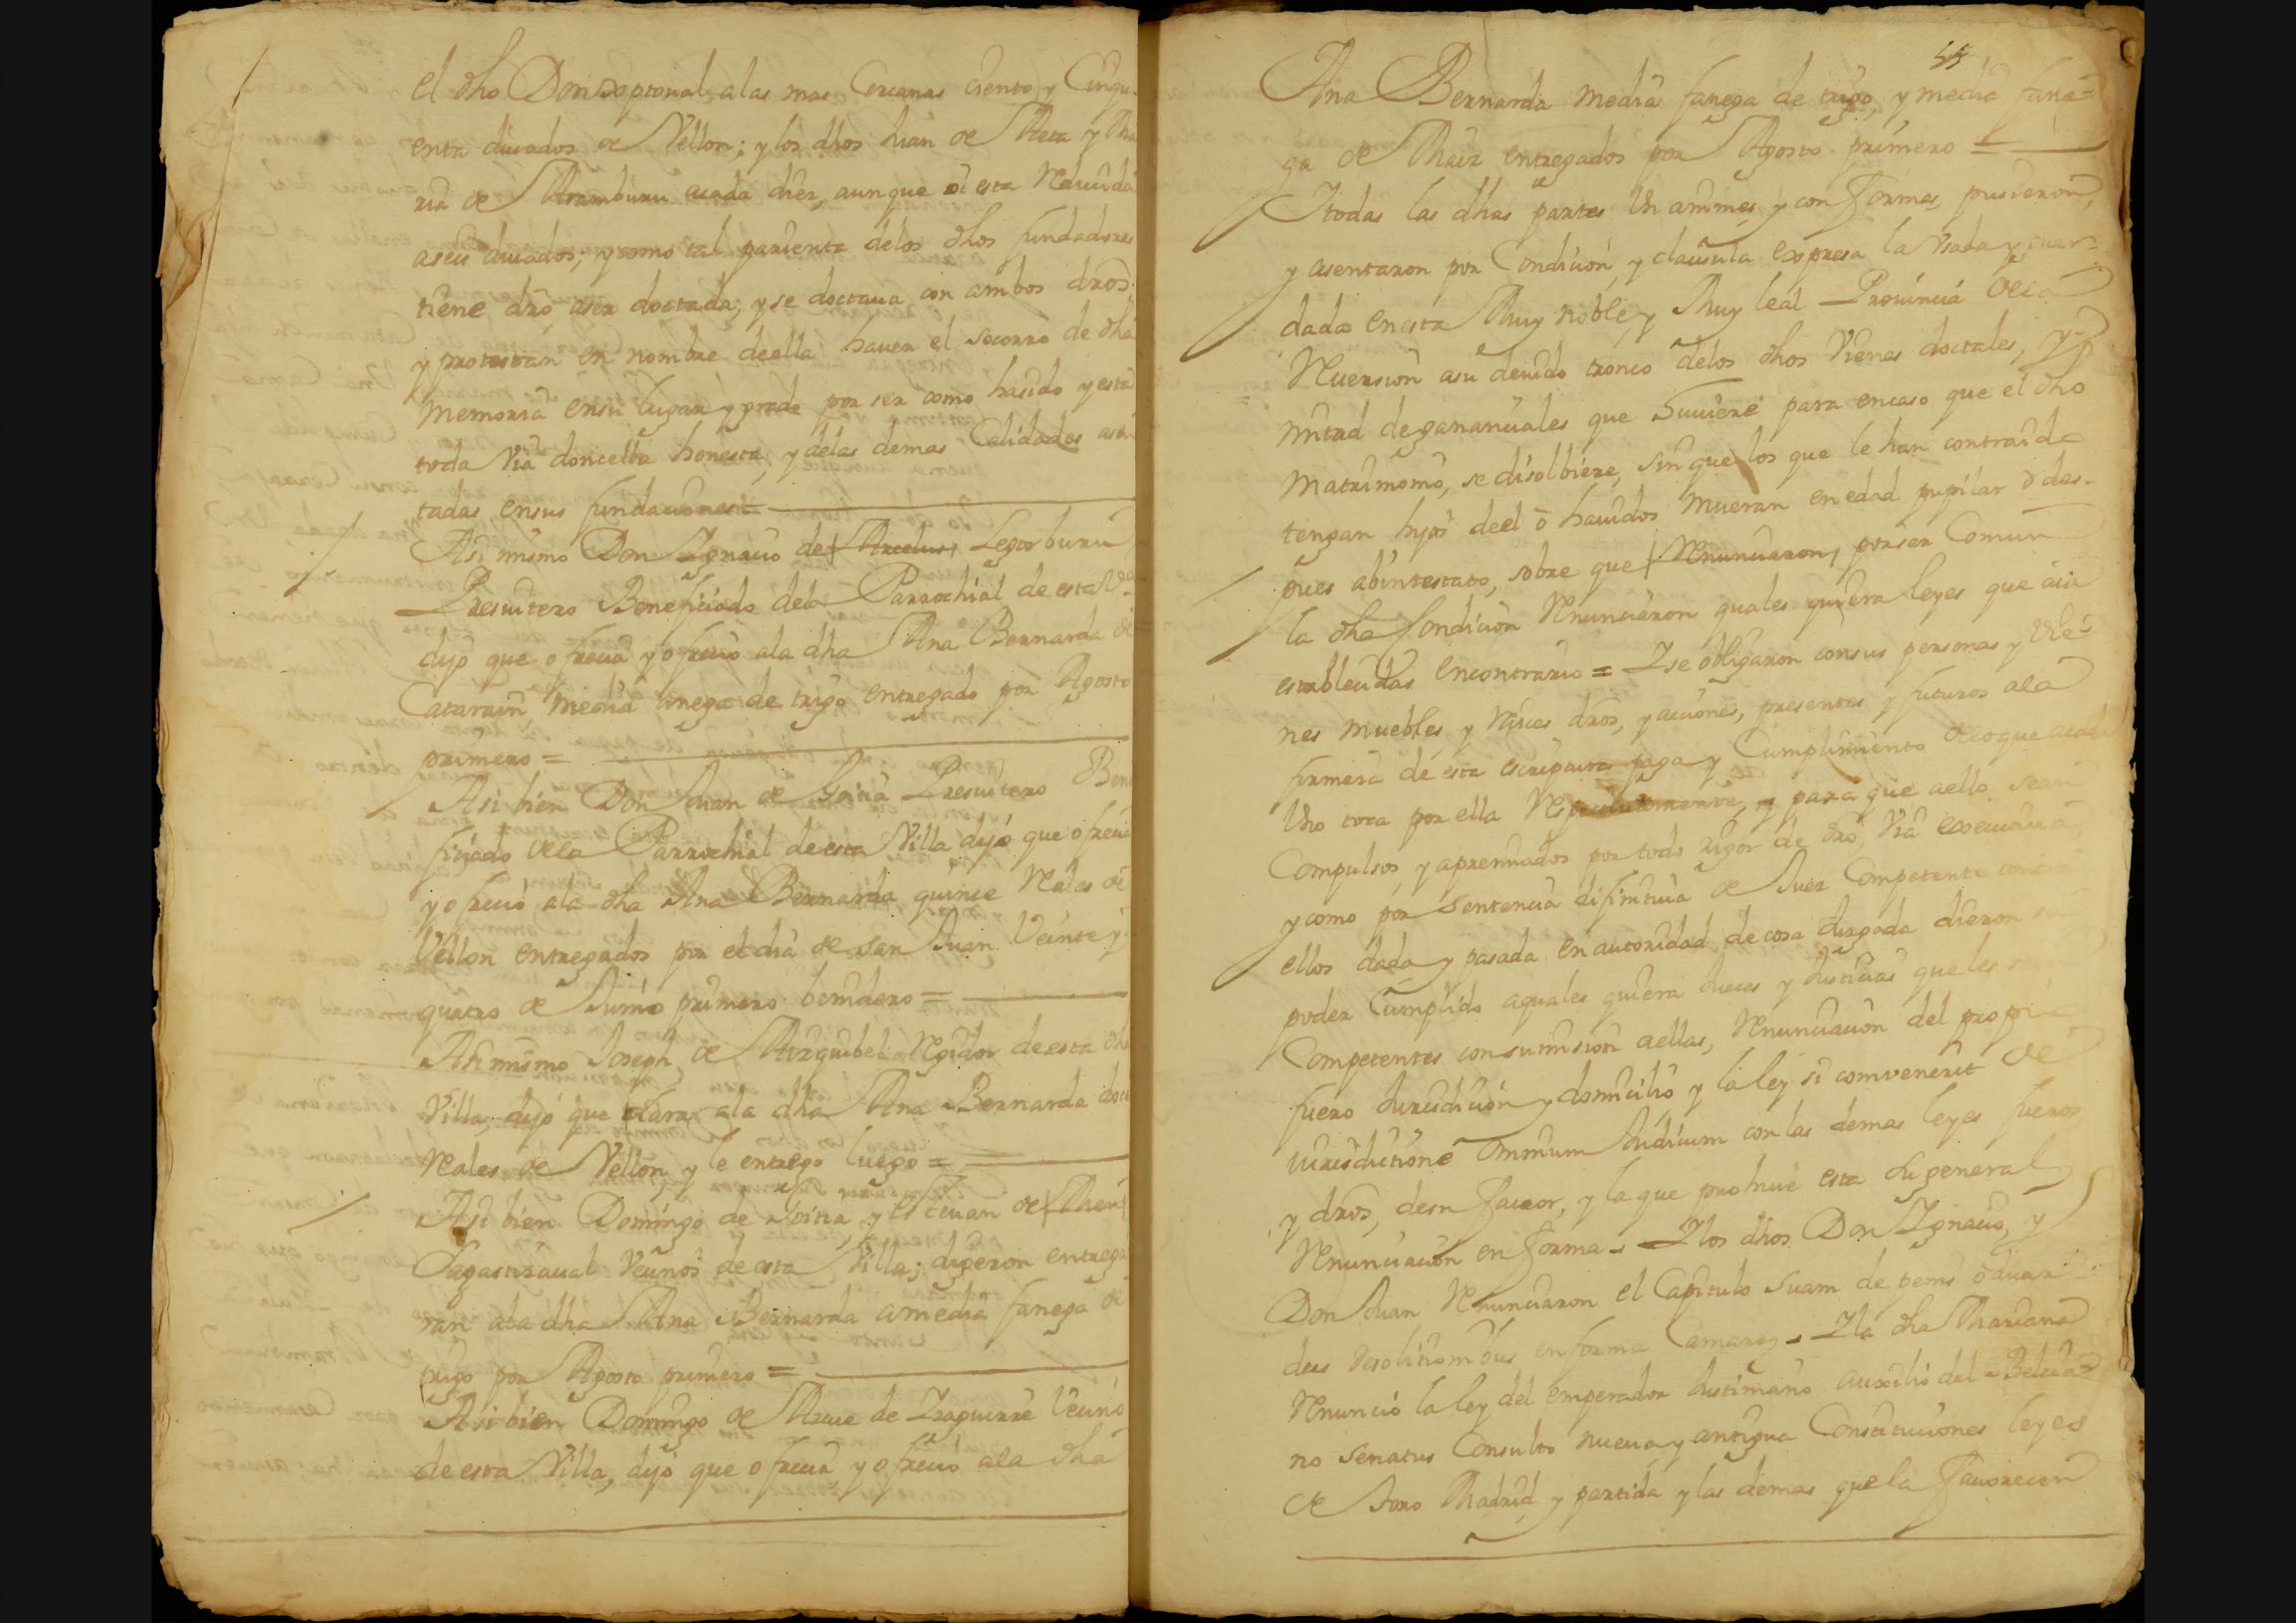 el dho Don Doptorual alas mas Cercanas ciento y Cinqu-
enta ducados de Vellon; y los dhos Juan de Aeta y Ma
ria de Aramburu acada diez, aunque oi esta Reducida
aseis ducados; y como tal parienta delos dhos fundadores
tiene dro aser doctada, y se doctaua con ambos dros.
y protestan en nombre deella hauer el socorro de dha
memoria ensu lugar y grado por ser como hasido y esta
toda via doncella honesta, y delas demas Calidades asen
tadas ensus fundaciones =
Asi mismo Don Ygnacio de Arcelus, Legorburu
Presuitero Beneficiado dela Parrochial de esta Va
dijo que ofrecia y ofrecio ala dha Ana Bernarda de
Catarain, media anega de trigo entregado por Agosto
primero =
Asi bien Don Juan de Goitia Presuitero Bene
ficiado dela Parrochial de esta Villa dijo que ofrecia
y ofrecio ala dha Ana Bernarda quince Reales de
Vellon entregados por el dia de San Juan Veinte y
quatro de Junio primero benidero =
Asi mismo Joseph de Aizquibel Regidor de esta dha
Villa, dijo que dara ala dha Ana Bernarda doce
Reales de Vellon, y le entrego luego =
Asi bien Domingo de Goitia, y Esteuan de
Sagastizaual Vecinos de esta Villa; dijeron entrega
ran ala dha Ana Bernarda amedia fanega de
trigo por Agosto primero =
Asi bien Domingo de Arrue de Yraguirre Vecino
de esta Villa, dijo que ofrecia y ofrecio ala dha
55
Ana Bernarda media fanega de trigo, y media fane-
ga de Maiz entregados por Agosto primero =
Y todas las dhas partes Unanimes, y conformes, pusieron,
y asentaron por Condicion, y clausula expresa la Usada y guar-
dada en esta Muy noble, y Muy leal Prouincia dela
Reuersion asu deuido tronco delos dhos Vienes doctales, y
mitad de gananciales que huuiere para encaso que el dho
Matrimonio, se disolbiere, sin que los que le han contraido
tengan hijos deel ô hauidos mueran en edad pupilar ô des-
pues abintestato, sobre que Renunciaron, por ser Comun
la dha Condicion Renunciaron quales quiera leyes que aia
establecidas encontrario = Y se obligaron consus personas y Vie-
nes muebles, y raices dros, y acciones, presentes y futuros ala
firmeza de esta escriptura paga y Cumplimiento deloque acada
Uno toca por ella Respectiuamente, y para que aello sean
Compulsos, y apremiados por todo rigor de dro, Via executiua,
y como por sentencia difinitiua de Juez Competente contra
ellos dada y pasada en autoridad de cosa Juzgada dieron su
poder Cumplido aquales quiera Jueces y Justicias queles sean
Competentes con sumision aellas, Renunciacion del propio
fuero Jurisdicion y domicilio y la ley si conuenerit de
iurisdictione omnium Judicum con las demas leyes fueros
y dros, desu fauor, y la que prohiue esta Ligeneral
Renunciacion en forma = Y los dhos Don Ygnacio, y
Don Juan Renunciaron el Capitulo Suam de penis oduar
dus desolutionibus en forma Camarae = Y la dha Mariana
Renuncio la ley del emperador Justiniano auxilio del Beleia-
no Senatus Consulto nueua, y antigua Constituciones leyes
de Toro Madrid, y partida y las demas que la fauorecen